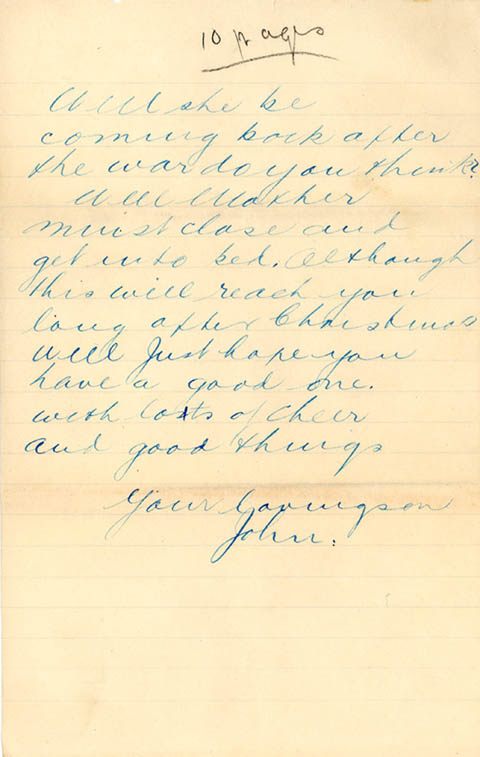 10 pages
Will she be
coming back after
the war do you think?
Well Mother
must close and
get into bed. Although
this will reach you
long after Christmas
will Just hope you
have a good one.
with lots of cheer
and good things
Your loving son
John.